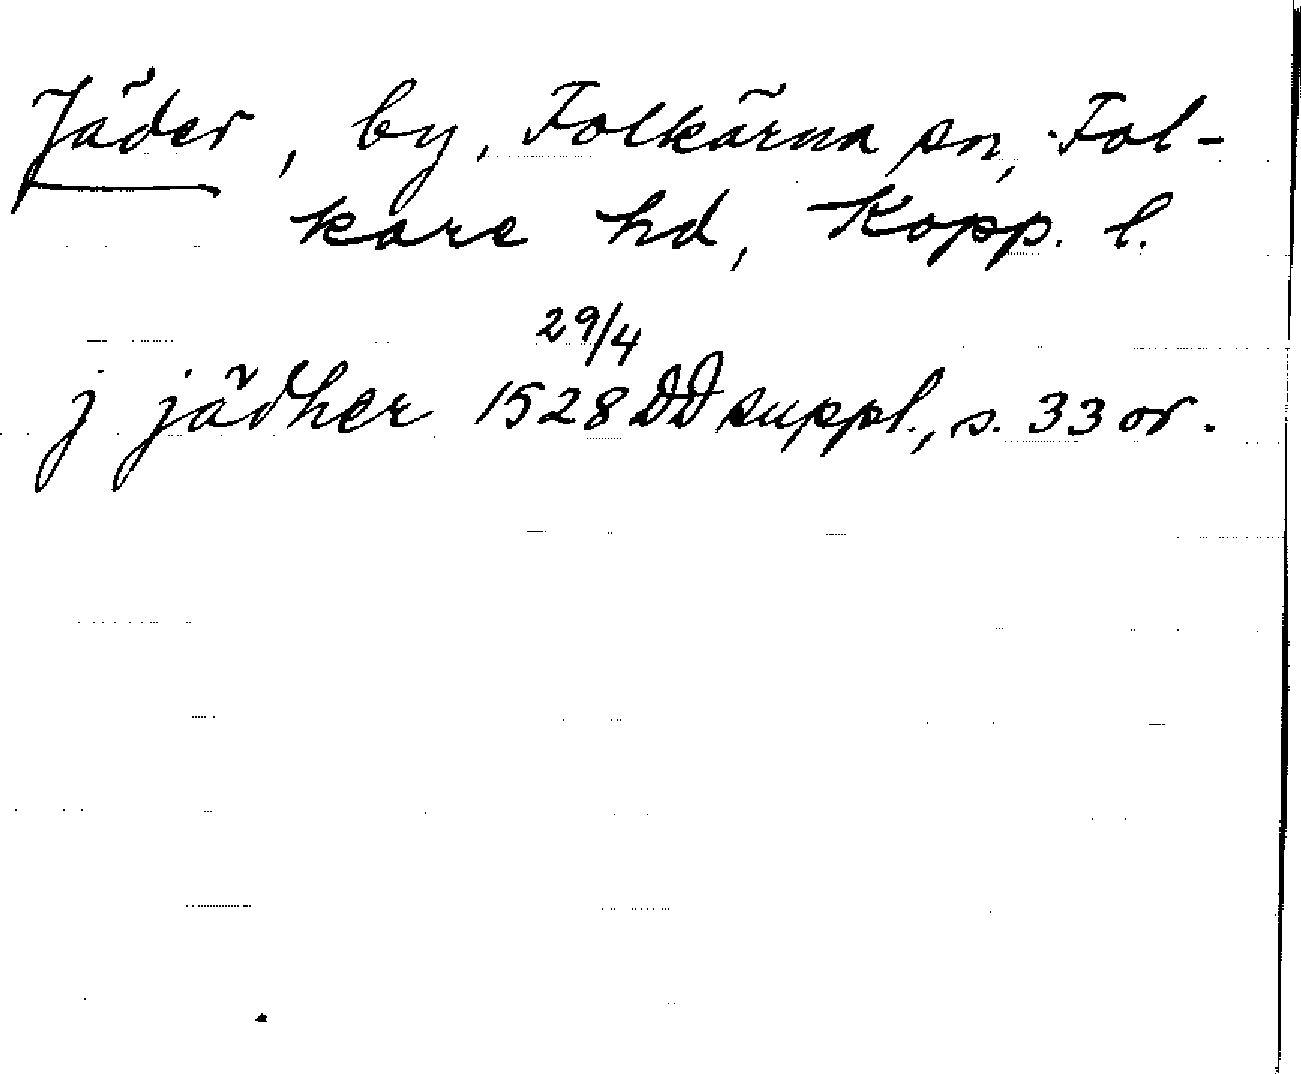 Jäder, by, Folkärna sn, Fol-
kare hd, Kopp. l.
29/4
j jädher 1528 DD suppl., s. 33 or.